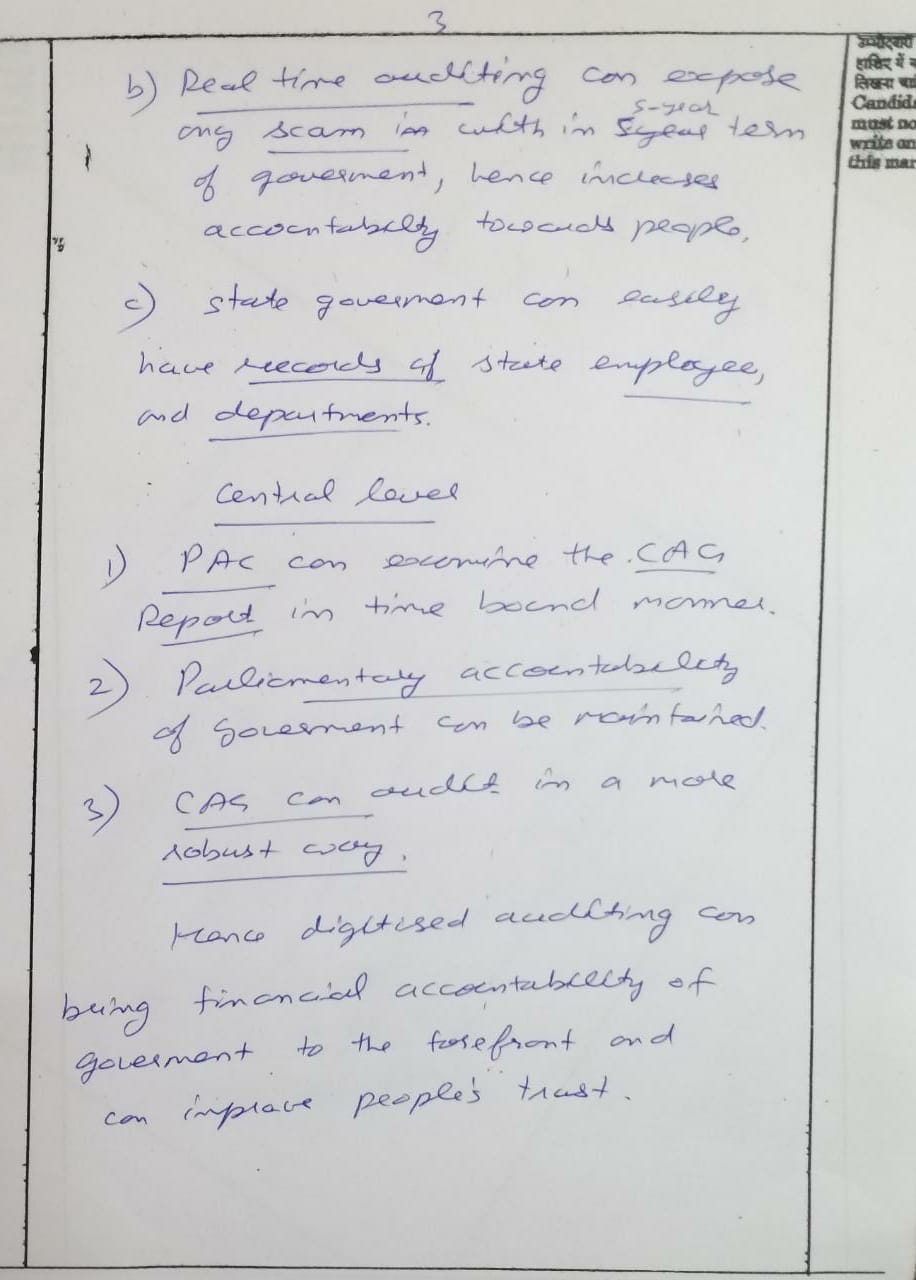 3
b) Real time auditing can expose
any scam in with in 5-year term
of goverment, hence increases
accountabilty towards people.
c) state goverment can easily
have records of state employee,
and departments.
Central level
1) PAC can examine the CAG
Report in time bound manner.
2) Parliamentary accountability
of goverment can be maintained.
3) CAG can audit in a more
robust way.
Hence digitised auditing can
bring financial accountability of
goverment to the forefront and
can improve people's trust.
उम्मीदवारों
हाशिए में न
लिखना चा
Candida
must no
write on
this mar